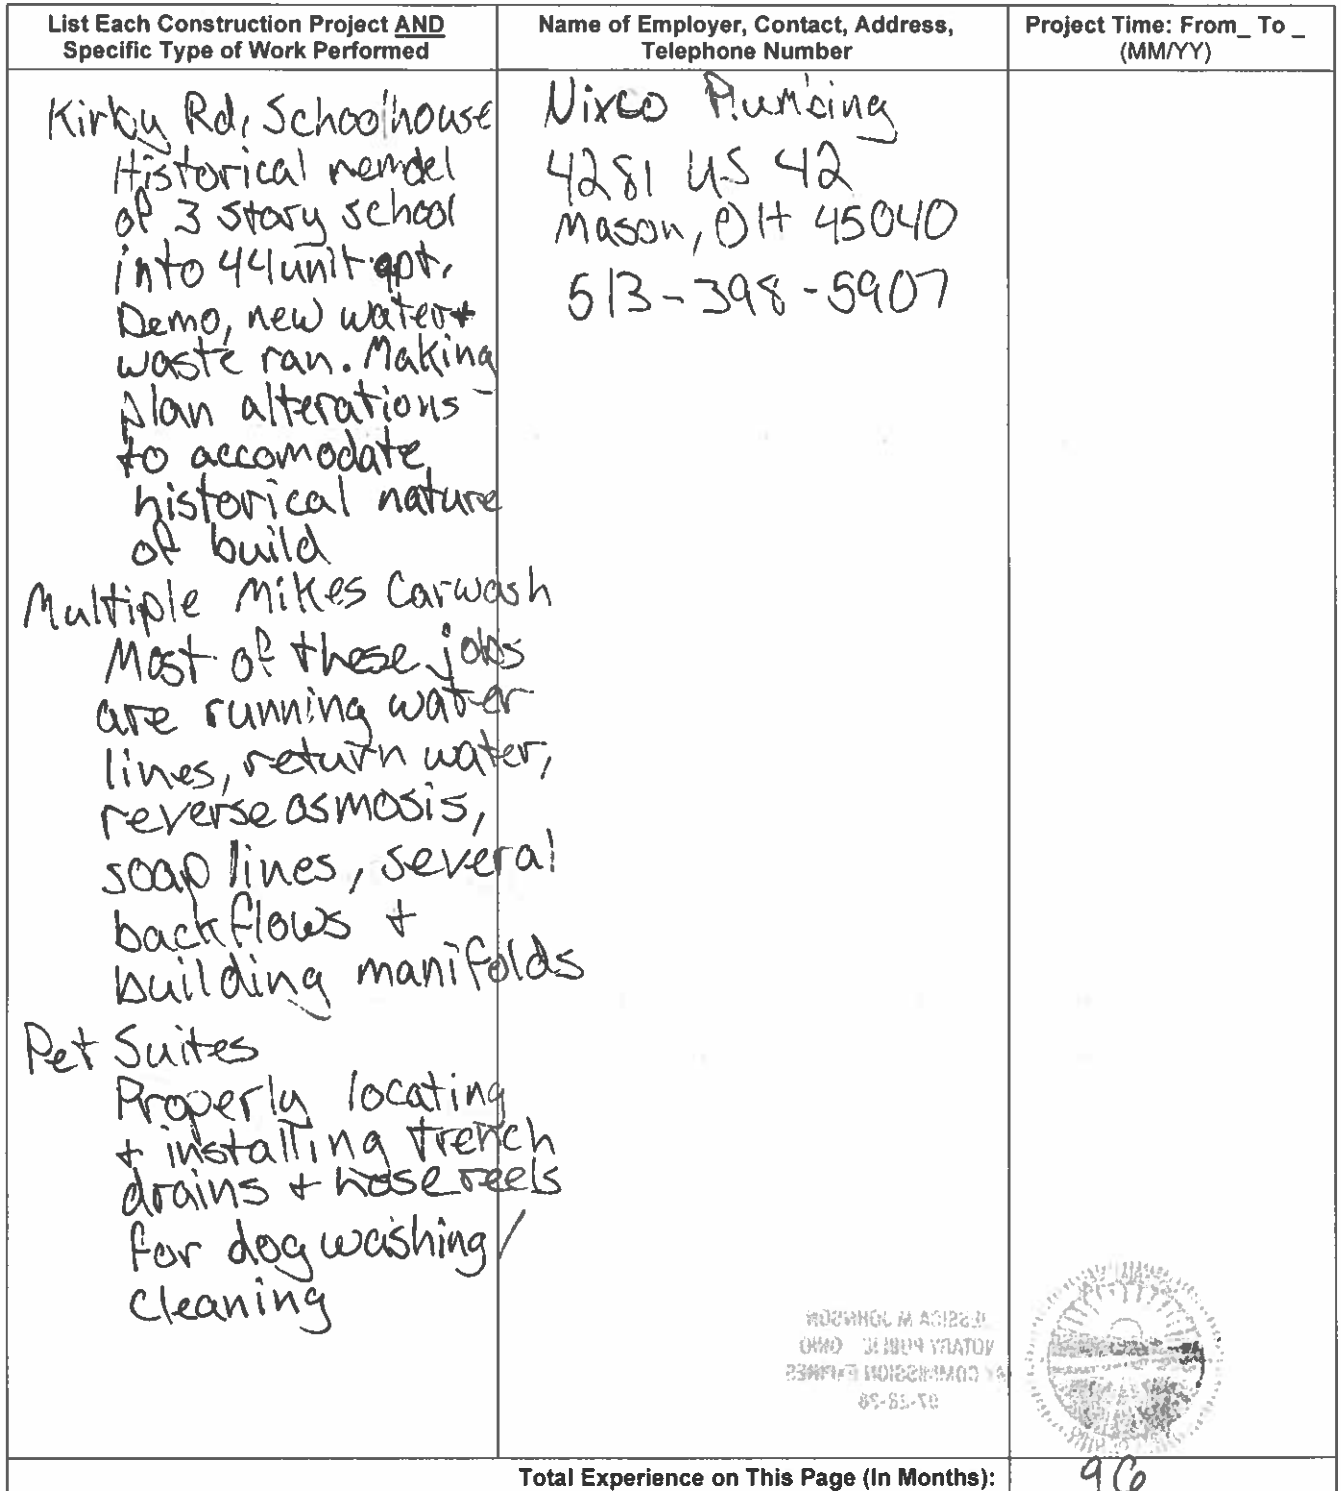 List Each Construction Project AND
Specific Type of Work Performed
Name of Employer, Contact, Address,
Telephone Number
Project Time: From_ To _
(MM/YY)
Kirby Rd, Schoolhouse
Historical remdel
of 3 story school
into 44 unit apt.
Demo, new water +
waste ran. Making
plan alterations
to accomodate
historical nature
of build
Multiple Mikes Carwash
Most of these jobs
are running water
lines, return water,
reverse osmosis,
soap lines, several
backflows +
building manifolds
Pet Suites
Properly locating
+ installing trench
drains + hose reels
for dog washing /
cleaning
Nixco Plumbing
4281 US 42
Mason, OH 45040
513-398-5907
JESSICA M JOHNSON
NOTARY PUBLIC OHIO
MY COMMISSION EXPIRES
Total Experience on This Page (In Months):
96